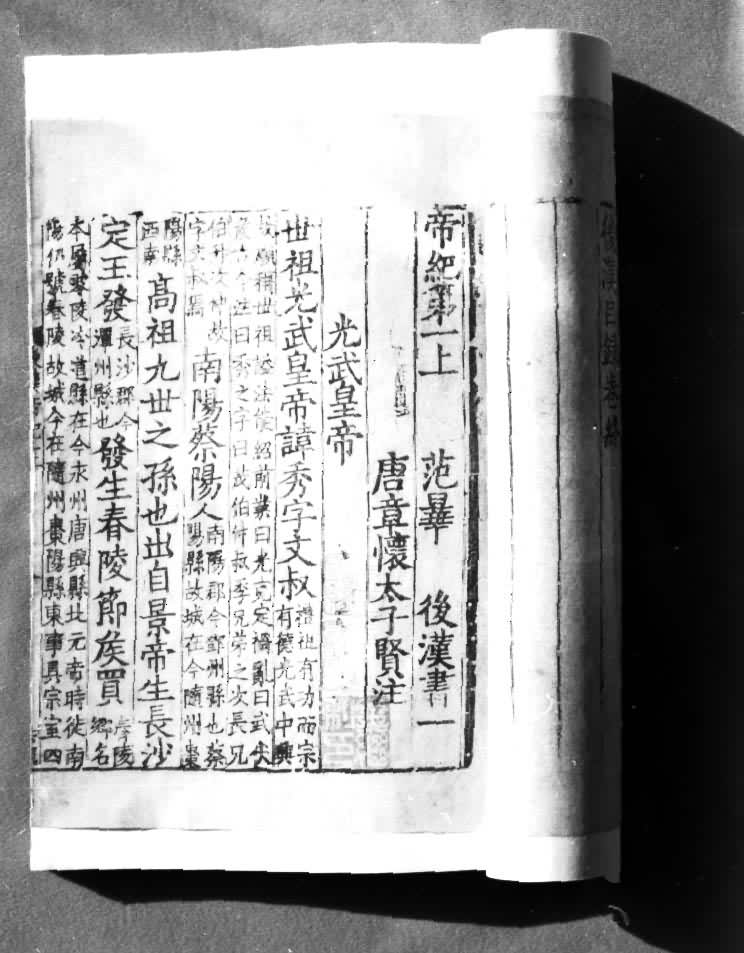 後漢目錄卷終
帝紀第一上 范曄 後漢書一
唐章懷太子賢注
光武皇帝
世祖光武皇帝諱秀字文叔禮祖有功而宗
有德光武中興
故廟稱世祖謚法能紹前業曰光克定禍亂曰武
侯古今注曰秀之字曰茂伯仲叔季兄弟之次長兄
伯升次仲故
字文叔焉
南陽蔡陽人南陽郡今鄧州縣也蔡
陽縣故城在今隨州棗
陽縣
西南
高祖九世之孫也出自景帝生長沙
定王發長沙郡今
潭州縣也
發生舂陵節侯買舂陵
鄉名
本屬零陵泠道縣在今永州唐興縣北元帝時徙南
陽仍號舂陵故城今在隨州棗陽縣東事具宗室四